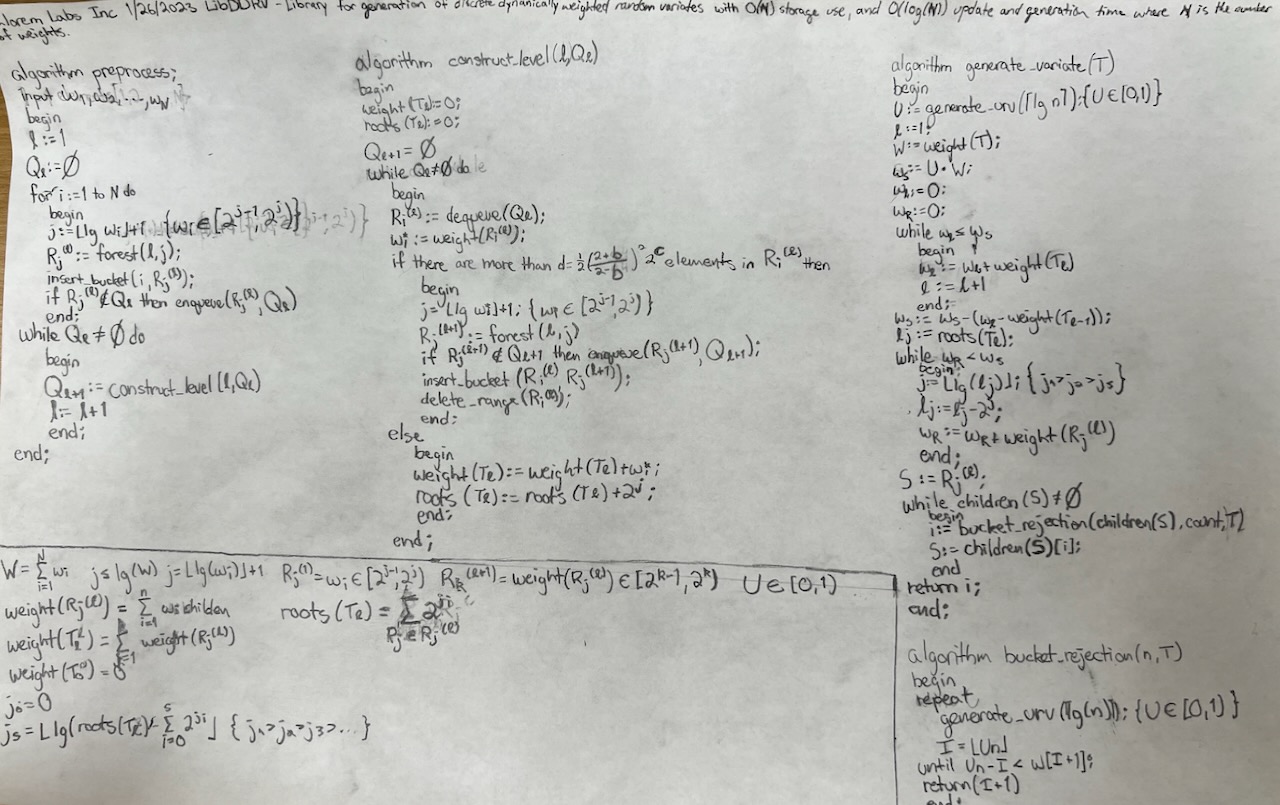 Labs Inc 1/26/2023 LibDDRV - Library for generation of discrete dynamically weighted random variates with O(N) storage use, and O(log(N)) update and generation time where N is the number
of weights.
algorithm preprocess;
input
begin
l := 1
Qℓ := ∅
for i := 1 to N do
begin
j := ⌊lg wi⌋+1 {wi ∈ [2^{j-1}, 2^j)}
Rj^(1) := forest(l, j);
insert_bucket(i, Rj^(1));
if Rj^(ℓ) ∉ Qℓ then enqueue(Rj^(ℓ), Qℓ)
end;
while Qℓ ≠ ∅ do
begin
Qℓ+1 := construct_level(l, Qℓ)
l := l+1
end;
end;
algorithm construct_level(l, Qℓ)
begin
weight(Tℓ) := 0;
roots(Tℓ) := 0;
Qℓ+1 = ∅
while Qℓ ≠ ∅ do
begin
Ri^(ℓ) := dequeue(Qℓ);
wi := weight(Ri^(ℓ));
if there are more than d = 1/2 (2+b/2-b)^2 2^c elements in Ri^(ℓ) then
begin
j = ⌊lg wi⌋+1; {wi ∈ [2^{j-1}, 2^j)}
Rj^(ℓ+1) := forest(l, j)
if Rj^(ℓ+1) ∉ Qℓ+1 then enqueue(Rj^(ℓ+1), Qℓ+1);
insert_bucket(Ri^(ℓ), Rj^(ℓ+1));
delete_range(Ri^(ℓ));
end;
else
begin
weight(Tℓ) := weight(Tℓ)+wi;
roots(Tℓ) := roots(Tℓ)+2^j;
end;
end;
algorithm generate_variate(T)
begin
U := generate_urv(⌈lg n⌉); {U ∈ [0,1)}
l := 1;
W := weight(T);
ws := U · W;
:= 0;
wR := 0;
while ≤ ws
begin
:= + weight(Tℓ)
l := l+1
end;
ws := ws-( -weight(Tℓ-1));
lj := roots(Tℓ);
while wR < ws
begin
j := ⌊lg(lj)⌋; {j1>j2>js}
lj := lj-2^j;
wR := wR+weight(Rj^(ℓ))
end;
S := Rj^(ℓ);
while children(S) ≠ ∅
begin
i := bucket_rejection(children(S).count, T)
S := children(S)[i];
end
return i;
end;
W = Σ_{i=1}^{N} wi js lg(W) j = ⌊lg(wi)⌋+1 Rj^(1) = wi ∈ [2^{j-1}, 2^j) Rk^(ℓ+1) = weight(Rj^(ℓ)) ∈ [2^{k-1}, 2^k) U ∈ [0,1)
weight(Rj^(ℓ)) = Σ_{i=1}^{n}
roots(Tℓ) = Σ 2^j
weight(Tℓ) = Σ weight(Rj^(ℓ))
weight(T0) = 0
j0 = 0
js = ⌊lg(roots(Tℓ) - Σ_{i=0}^{s} 2^{ji}⌋ {j1>j2>j3>...}
algorithm bucket_rejection(n, T)
begin
repeat
generate_urv(⌈lg(n)⌉); {U ∈ [0,1)}
I = ⌊Un⌋
until Un-I < w[I+1];
return(I+1)
end;